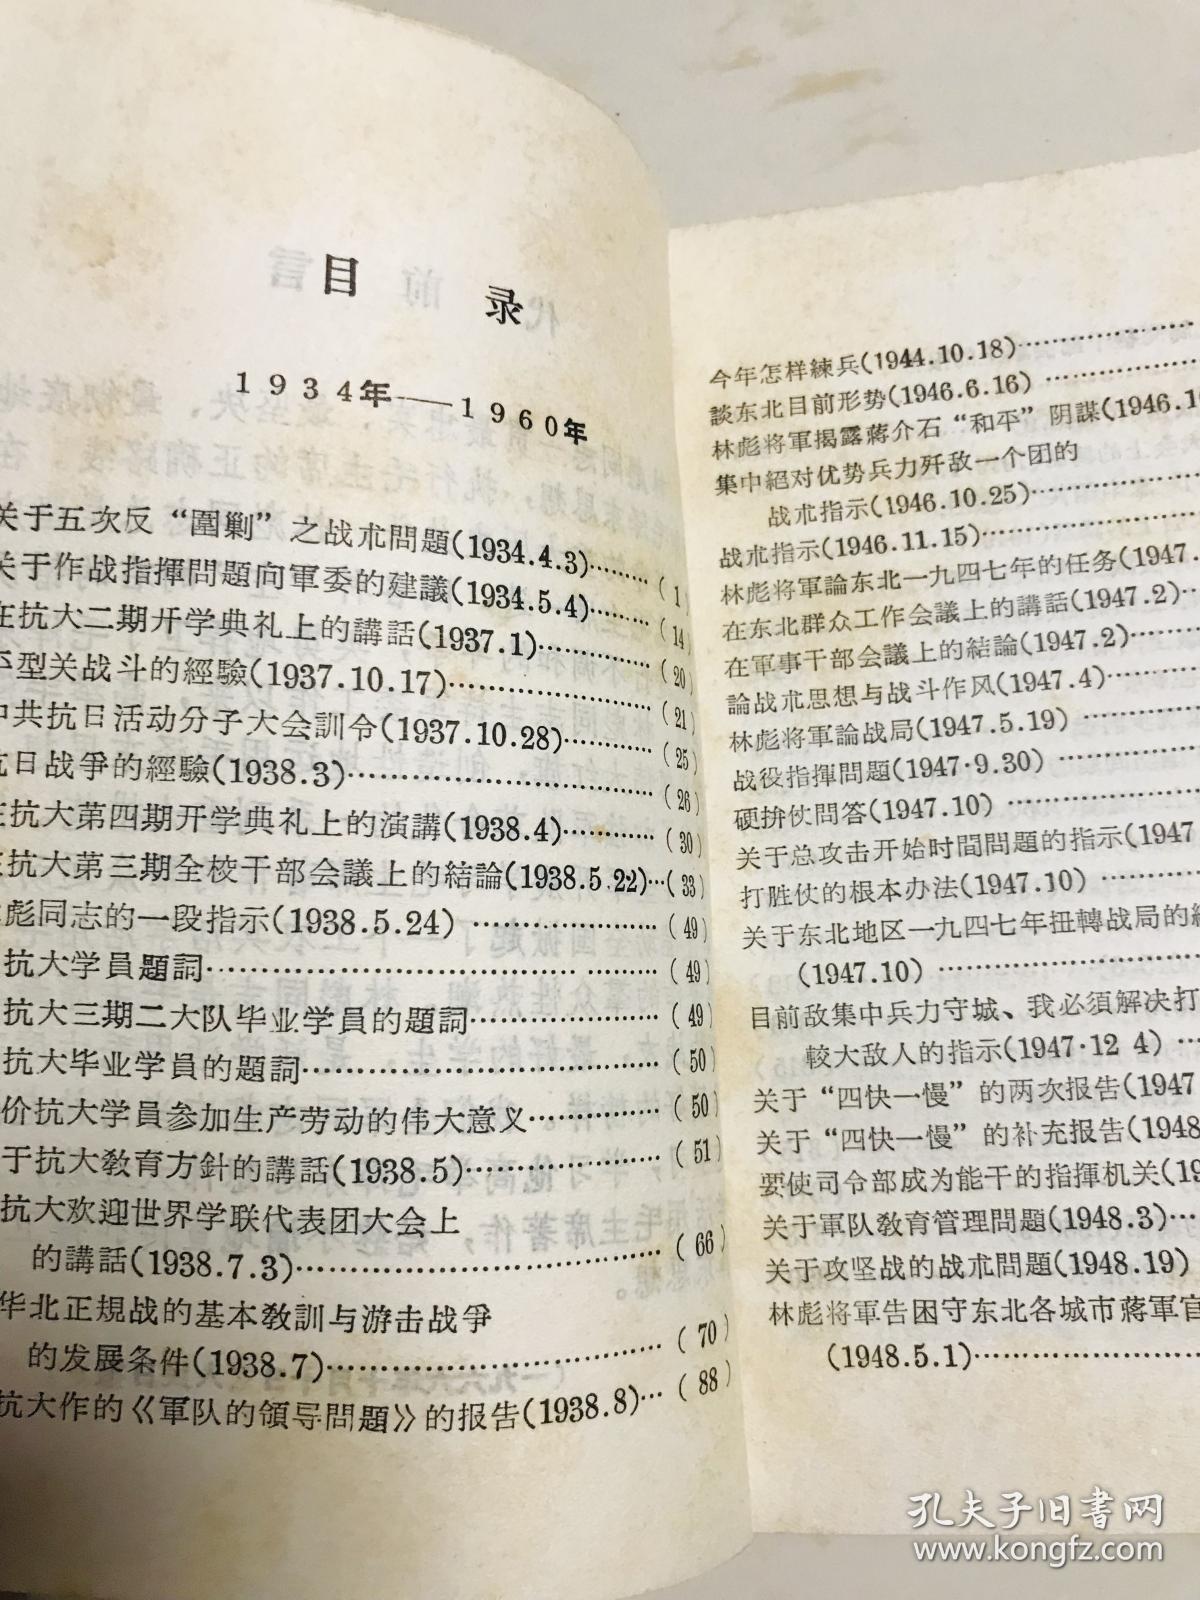 目 录
1934年——1960年
关于五次反“圍剿”之战朮問題(1934.4.3)………(1)
关于作战指揮問題向軍委的建議(1934.5.4)……(14)
在抗大二期开学典礼上的講話(1937.1)…………(20)
平型关战斗的經驗(1937.10.17)…………………(21)
中共抗日活动分子大会訓令(1937.10.28)…………(25)
抗日战爭的經驗(1938.3)…………………………(26)
在抗大第四期开学典礼上的演講(1938.4)…………(30)
在抗大第三期全校干部会議上的結論(1938.5.22)…(33)
彪同志的一段指示(1938.5.24)…………………(49)
抗大学員題詞……………………………………(49)
抗大三期二大队毕业学員的題詞…………………(49)
抗大毕业学員的題詞………………………………(50)
价抗大学員参加生产劳动的伟大意义……………(50)
于抗大敎育方針的講話(1938.5)…………………(51)
抗大欢迎世界学联代表团大会上
的講話(1938.7.3)………………………………(66)
华北正規战的基本敎訓与游击战爭
的发展条件(1938.7)……………………………(70)
抗大作的《軍队的領导問題》的报告(1938.8)…(88)
今年怎样練兵(1944.10.18)………………
談东北目前形势(1946.6.16)………………
林彪将軍揭露蔣介石“和平”阴謀(1946.1
集中絕对优势兵力歼敌一个团的
战朮指示(1946.10.25)………………
战朮指示(1946.11.15)………………
林彪将軍論东北一九四七年的任务(1947.
在东北群众工作会議上的講話(1947.2)……
在軍事干部会議上的結論(1947.2)………
論战朮思想与战斗作风(1947.4)…………
林彪将軍論战局(1947.5.19)……………
战役指揮問題(1947·9.30)………………
硬拚仗問答(1947.10)…………………
关于总攻击开始时間問題的指示(1947
打胜仗的根本办法(1947.10)……………
关于东北地区一九四七年扭轉战局的
(1947.10)…………………………
目前敌集中兵力守城、我必須解决打
較大敌人的指示(1947·12 4)……
关于“四快一慢”的两次报告(1947
关于“四快一慢”的补充报告(1948
要使司令部成为能干的指揮机关(19
关于軍队敎育管理問題(1948.3)…
关于攻坚战的战朮問題(1948.19)
林彪将軍告困守东北各城市蔣軍官
(1948.5.1)……………………
孔夫子旧書网
www.kongfz.com